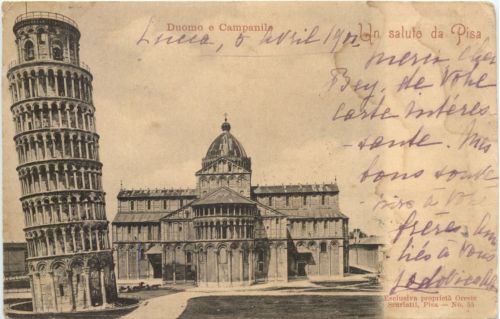 Duomo e Campanile
Un saluto da Pisa
Lucca, 5 avril 190
merci cher
Bey, de votre
carte intéres-
-sante. Mes
bons souve
nirs à vos
frères. Am
tiés à vous
Esclusiva proprietà Oreste
Scarlatti, Pisa — No. 35